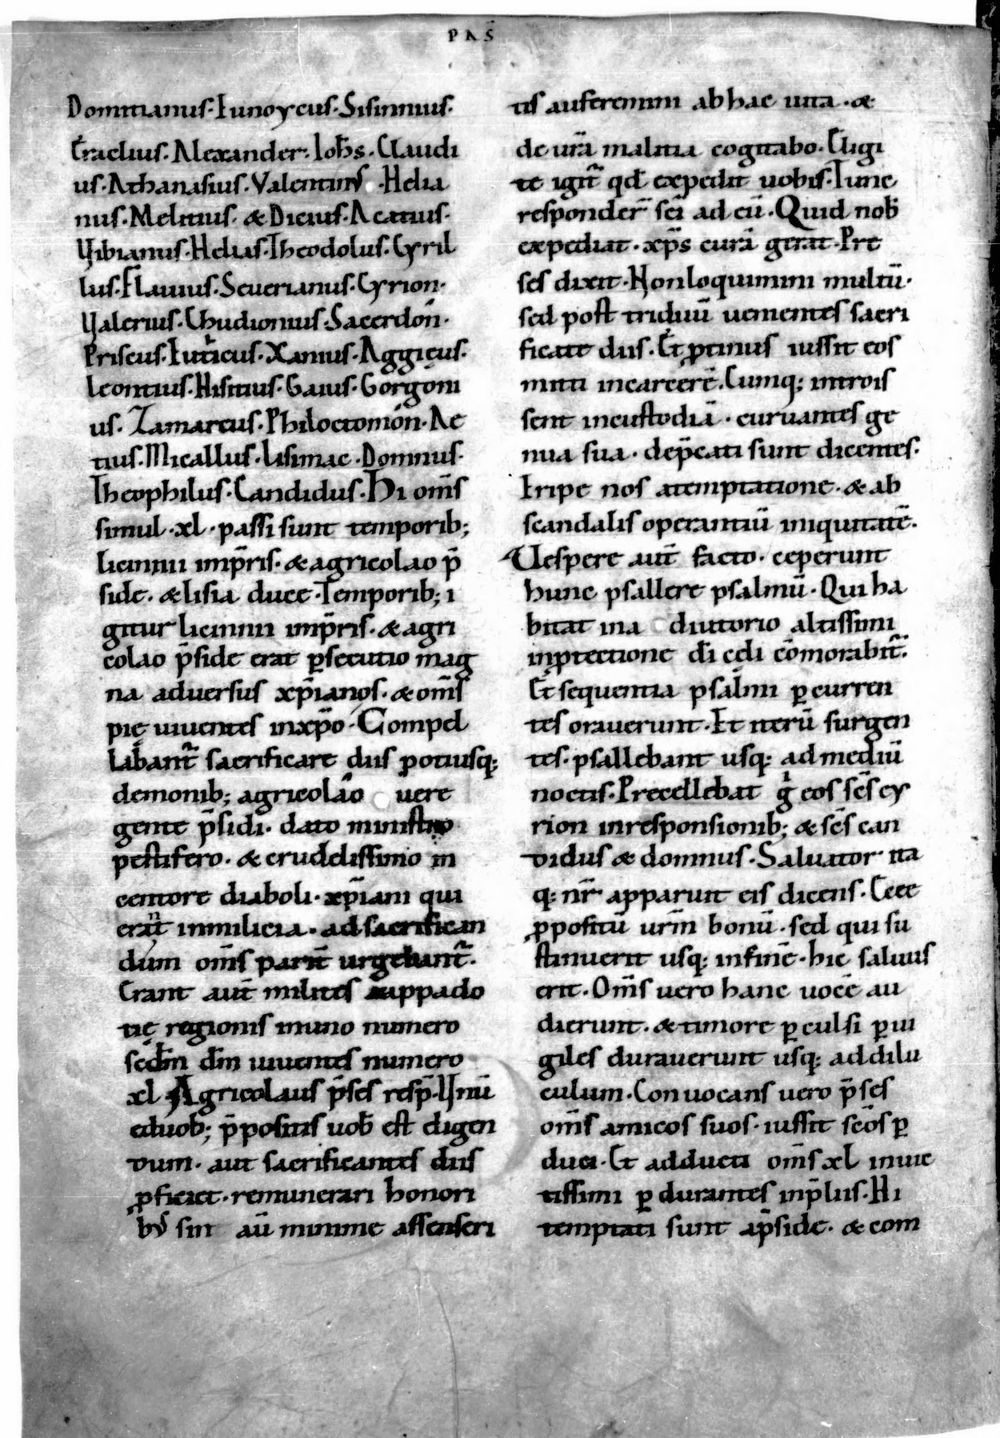 PAS
Domitianus· Iunoycus· Sisinnius·
Eraclius· Alexander· Ioh̄s· Claudi
us· Athanasius· Valentinus· Helia
nus· Melitius· & Dicius· Acatius·
Vibianus· Helias· Theodolus· Cyril
lus· Flauius· Seuerianus· Cyrion·
Valerius· Chudionius· Sacerdon·
Priscus· Iuticus· Xanius· Aggięus·
Leontius· Hisitius· Gaius· Gorgoni
us· Zamarcus· Philoctomon· Ae
tius· Micallus· Lisimac· Domnus·
Theophilus· Candidus· Hi om̄s
simul ·xl· passi sunt temporib;
licinnii imp̄ris· & agricolao p̄
side· & lisia duce· Temporib; i
gitur licinnii imp̄ris· & agri
colao p̄side erat ꝑsecutio mag
na aduersus xp̄ianos· & om̄s
pię uiuentes in xp̄o· Compel
labant̄ sacrificare diis potiusq;
demonib; agricolao uere
gente p̄sidi· dato ministro
pestifero· & crudelissimo in
centore diaboli· xp̄iani qui
erant in milicia· ad sacrifican
dum om̄s parit̄ urgebant̄·
Erant aut̄ milites cappado
tię regionis in uno numero
sed̄m dm̄ uiuentes numero
xl Agricolaus p̄ses resp̄· Vnū
eduob; p̄positis uob̄ est eligen
dum· aut sacrificantes diis
ꝓficiet· remunerari honori
b; sin aū minime assenseri
tis auferemini ab hac uita· &
de urā malitia cogitabo· Eligi
te igit̄ qd̄ expedit uobis· Tunc
responder̄ sc̄i ad eū· Quid nob̄
expediat· xp̄s curā gerat· Pre
ses dixit· Non loquimini multū·
sed post triduū uenientes sacri
ficate diis· Et ꝓtinus iussit eos
mitti in carcerē· Cumq; introis
sent in custodiā· curuantes ge
nua sua· dep̄cati sunt dicentes·
Eripe nos a temptatione· & ab
scandalis operantiū iniquitatē·
Vespere aut̄ facto· ceperunt
hunc psallere psalmū· Qui ha
bitat in a diutorio altissimi
in ꝓtectione di cęli cōmorabit̄·
Et sequentia psalmi ꝑcurren
tes orauerunt· Et iterū surgen
tes· psallebant usq; ad mediū
noctis· Precellebat g̊ eos sc̄s cy
rion in responsionib; & sc̄s can
didus & domnus· Saluator ita
q; nr̄ apparuit eis dicens· Ecce
ꝓpositū urm̄ bonū· sed qui su
stinuerit usq; in finē· hic saluus
erit· Om̄s uero hanc uocē au
dierunt· & timore ꝑculsi ꝑui
giles durauerunt usq; ad dilu
culum· Conuocans uero p̄ses
om̄s amicos suos· iussit sc̄os ꝑ
duci· Et adducti om̄s xl inuic
tissimi ꝑdurantes in p̄liis· Hi
temptati sunt a p̄side· & com